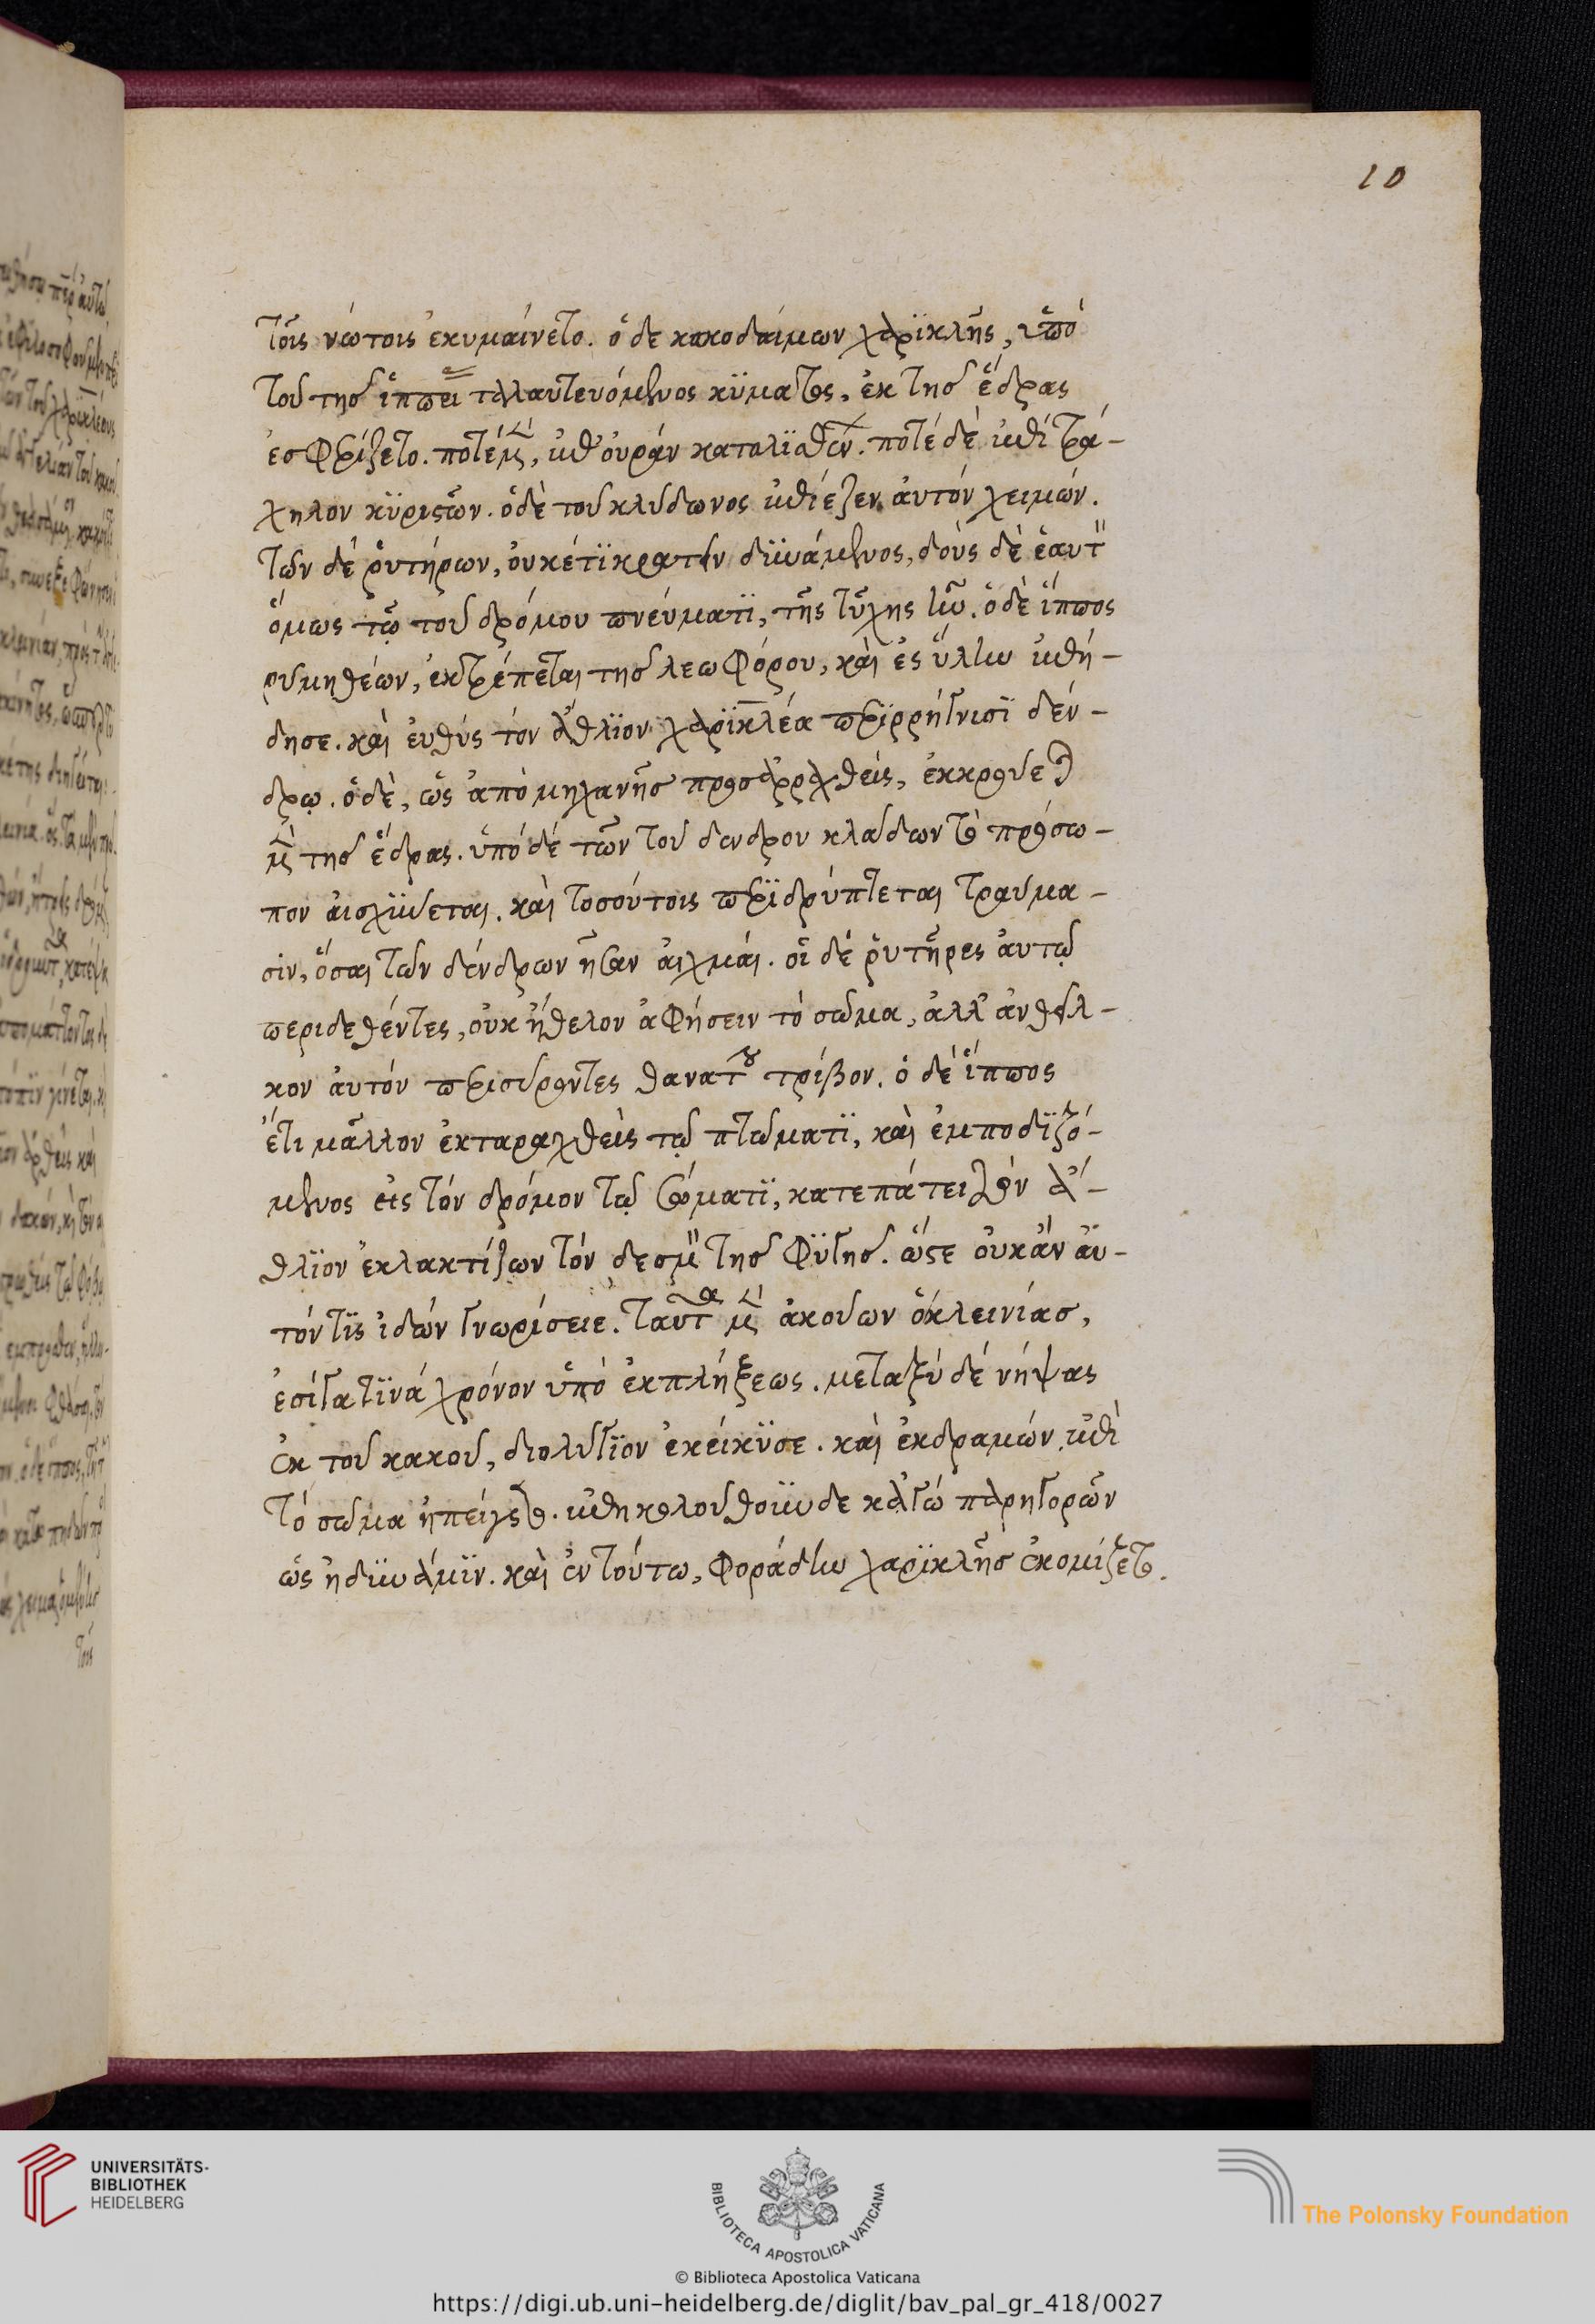 10
τοῖς νώτοις ἐκυμαίνετο. ὁ δε κακοδαίμων χαρϊκλῆς, ὑπὸ
τοῦ τῆσ ἱππει ταλαντευόμενος κύματος, ἐκ τῆσ ἕδρας
ἐσφαιρίζετο. ποτὲ μὲν, ἐπ' οὐρὰν κατολϊσθαίνων. ποτὲ δὲ ἐπὶ τρά-
χηλον κϋβιστῶν. ὁ δὲ τοῦ κλύδωνος ἐπίεζεν αὐτὸν χειμών.
τῶν δὲ ῥυτήρων, οὐκέτϊ κρατεῖν δϋνάμενος, δοὺς δὲ ἑαυτὸν
ὅμως τῷ τοῦ δρόμου πνεύματϊ, τῆς τύχης ἦν. ὁ δὲ ἵππος
ρυμηθέων, ἐκτρέπεται τῆσ λεωφόρου, καὶ ἐς ὕλην ἐπή-
δησε. καὶ εὐθὺς τὸν ἄθλϊον χαρϊκλέα περϊρρήγνισϊ δέν-
δρῳ. ὁ δὲ, ὡς ἀπὸ μηχανῆσ προσαρραχθεὶς, ἐκκρούεται
μὲν τῆσ ἕδρας. ὑπὸ δὲ τῶν τοῦ δενδρον κλάδων τὸ πρόσω-
πον αἰσχϋνεται. καὶ τοσούτοις περϊδρύπτεται τραύμα-
σιν, ὅσαι τῶν δένδρων ἦσαν αἰχμάι. οἱ δὲ ῥυτῆρες αὐτῷ
περιδεθέντες, οὐκ ἤθελον ἀφήσειν τὸ σῶμα, ἀλλ' ἀνθεῖλ-
κον αὐτὸν περισύροντες θανάτου τρίβον. ὁ δὲ ἵππος
ἔτι μᾶλλον ἐκταραχθεὶς τῷ πτώματϊ, καὶ ἐμποδϊζό-
μενος εἰς τὸν δρόμον τῷ σώματϊ, κατεπάτει τὸν ἄ-
θλϊον ἐκλακτίζων τὸν δεσμὸν τῆσ φϋγῆσ. ὥστε οὐκ ἂν αὐ-
τόν τϊς ἰδὼν γνωρίσειε. ταῦτα μὲν ἀκούων ὁ κλεινίασ,
ἐσίγα τϊνὰ χρόνον ὑπὸ ἐκπλήξεως. μεταξὺ δὲ νήψας
ἐκ τοῦ κακοῦ, διωλύγϊον ἐκώκϋσε. καὶ ἐκδραμὼν ἐπὶ
τὸ σῶμα ἠπείγετο. ἐπηκολούθουν δε κἀγὼ παρηγορῶν
ὡς ἠδϋνάμϊν. καὶ ἐν τούτω, φοράδην χαρϊκλῆσ ἐκομίζετο.
τοῖς
UNIVERSITÄTS-
BIBLIOTHEK
HEIDELBERG
BIBLIOTECA APOSTOLICA VATICANA
The Polonsky Foundation
© Biblioteca Apostolica Vaticana
https://digi.ub.uni-heidelberg.de/diglit/bav_pal_gr_418/0027